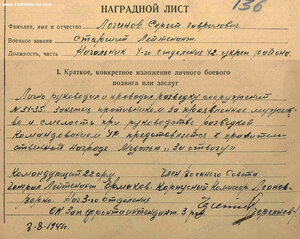 136
НАГРАДНОЙ ЛИСТ
Фамилия, имя и отчество Логинов Сергей Гаврилович
Военное звание Старший Лейтенант
Должность, часть Начальник 4-го отделения 42 укреп района.
I. Краткое, конкретное изложение личного боевого
подвига или заслуг
Лично руководил и проводил разведку сооружений
занятых противником за проявленные мужест-
во и смелость при руководстве разведкой
Командованием УР представляется к правитель-
ственной Награде Медалью "За отвагу"
Командующий 22 арм. Член Военного Совета
Генерал Лейтенант Ермаков. Корпусной Комиссар Леонов
Верно. Нач 3-го отделения
ОК Зап. фронта интендант 3 р.
3-8-1941г.